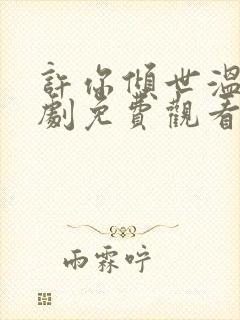 許你傾世溫
劇免費觀看
雨霖咛